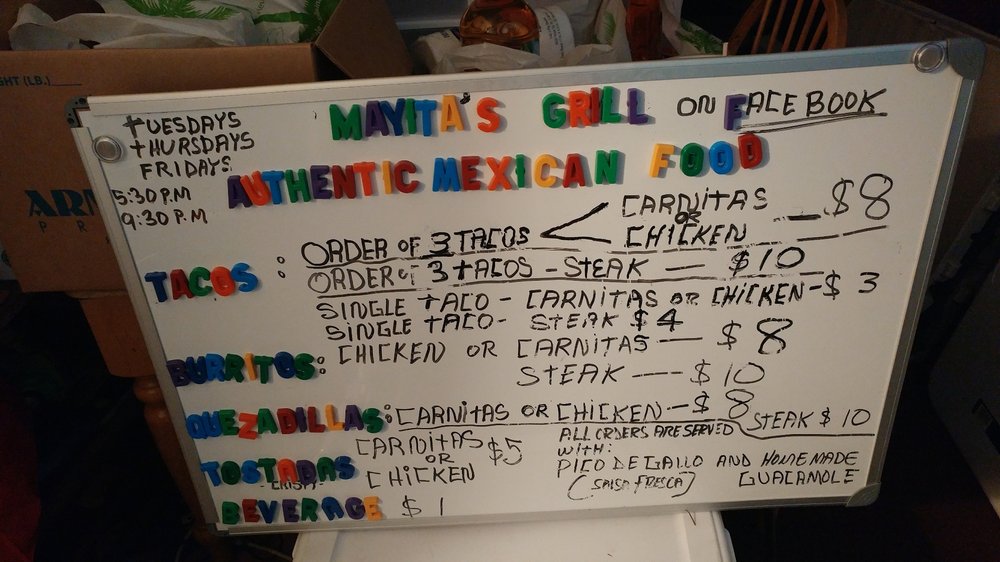 MAYITA'S GRILL ON FACEBOOK
AUTHENTIC MEXICAN FOOD
TUESDAYS
THURSDAYS
FRIDAYS
5:30 P.M
9:30 P.M
TACOS: ORDER OF 3 TACOS < CARNITAS OR CHICKEN — $8
ORDER OF 3 TACOS - STEAK — $10
SINGLE TACO - CARNITAS OR CHICKEN - $3
SINGLE TACO - STEAK $4
BURRITOS: CHICKEN OR CARNITAS — $8
STEAK — $10
QUEZADILLAS: CARNITAS OR CHICKEN - $8 STEAK $10
TOSTADAS CARNITAS OR CHICKEN $5
- CRISPY -
BEVERAGE $1
ALL ORDERS ARE SERVED
WITH:
PICO DE GALLO AND HOMEMADE
(SALSA FRESCA) GUACAMOLE